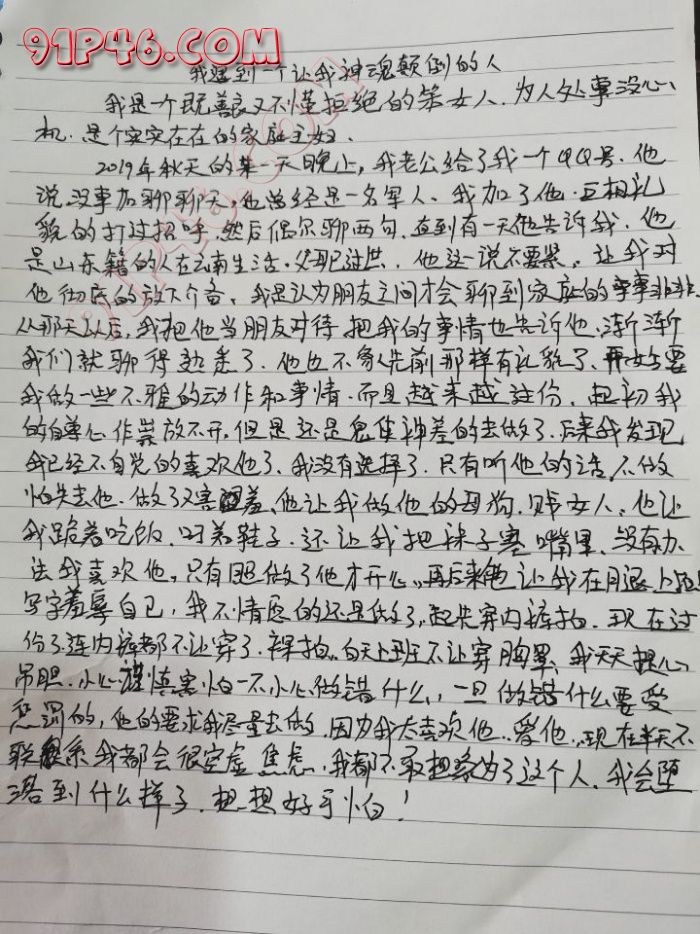 91P46.COM
我遇到一个让我神魂颠倒的人
我是一个既善良又不懂拒绝的笨女人、为人处事没心
机、是个实实在在的家庭主妇、
2019年秋天的某一天晚上，我老公给了我一个QQ号、他
说没事加聊聊天，也曾经是一名军人、我加了他·互相礼
貌的打过招呼、然后偶尔聊两句、直到有一天他告诉我、他
是山东籍的人在云南生活·父母已过世、他这一说不要紧、让我对
他彻底的放下介备、我是认为朋友之间才会聊到家庭的事事非非
从那天以后，我把他当朋友对待把我的事情也告诉他、渐渐
我们就聊得熟悉了、他也不象先前那样有礼貌了、开始要
我做一些不雅的动作和事情·而且越来越过份、起初我
的自尊心作祟放不开，但是还是鬼使神差的去做了、后来我发现
我已经不自觉的喜欢他了、我没有选择了、只有听他的话、不做
怕失去他、做了又害羞、他让我做他的母狗、贱女人、他让
我跪着吃饭、叼着鞋子、还让我把袜子塞嘴里、没有办
法我喜欢他，只有照做了他才开心、再后来他让我在月退上
写字羞辱自己，我不情愿的还是做了、起先穿内裤拍、现在过
份了连内裤都不让穿了、裸拍、白天上班不让穿胸罩、我天天提心
吊胆、小心谨慎害怕一不小心做错什么，一旦做错什么要受
惩罚的，他的要求我尽量去做，因为我太喜欢他、爱他、现在半天不
联系我都会很空虚焦虑、我都不敢想象为了这个人、我会堕
落到什么样子、想想好可怕！